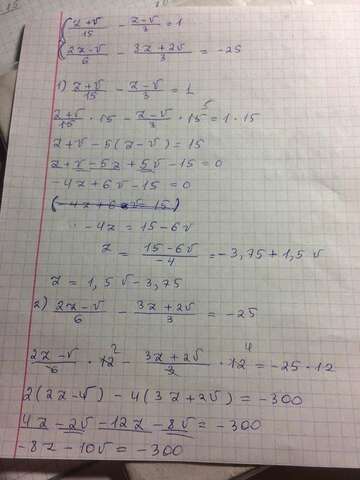 { (z+v)/15 - (z-v)/3 = 1
{ (2z-v)/6 - (3z+2v)/3 = -25
1) (z+v)/15 - (z-v)/3 = 1
(z+v)/15 · 15 - (z-v)/3 · 15⁵ = 1 · 15
z+v-5(z-v) = 15
z+v-5z+5v-15=0
-4z+6v-15=0
(-4z+6v=15)
-4z = 15-6v
z = (15-6v)/-4 = -3,75+1,5v
z = 1,5v-3,75
2) (2z-v)/6 - (3z+2v)/3 = -25
(2z-v)/6 · 12² - (3z+2v)/3 · 12⁴ = -25·12
2(2z-v) - 4(3z+2v) = -300
4z-2v-12z-8v = -300
-8z-10v = -300